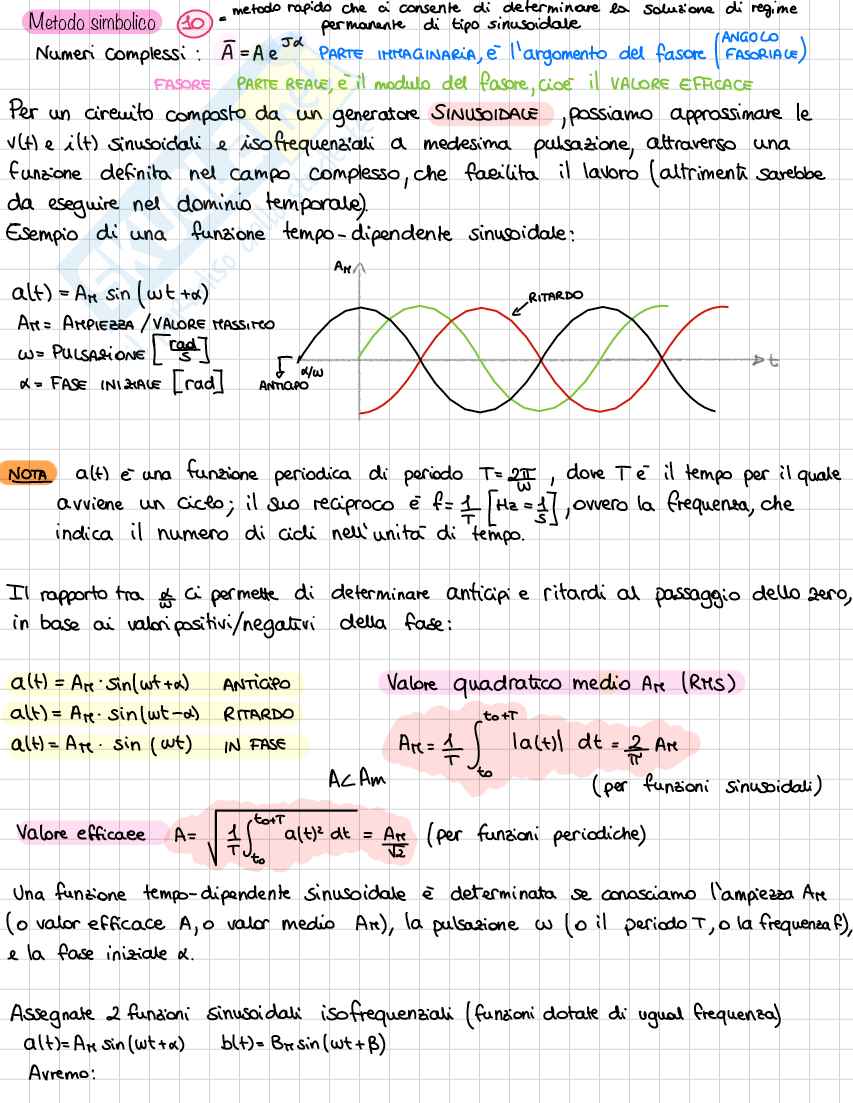 Metodo simbolico 10 = metodo rapido che ci consente di determinare la soluzione di regime
permanente di tipo sinusoidale
Numeri complessi : Ā = A e^Jα PARTE IMMAGINARIA, è l'argomento del fasore (ANGOLO FASORIALE)
FASORE PARTE REALE, è il modulo del fasore, cioè il VALORE EFFICACE
Per un circuito composto da un generatore SINUSOIDALE, possiamo approssimare le
v(t) e i(t) sinusoidali e isofrequenziali a medesima pulsazione, attraverso una
funzione definita nel campo complesso, che facilita il lavoro (altrimenti sarebbe
da eseguire nel dominio temporale).
Esempio di una funzione tempo-dipendente sinusoidale:
a(t) = A_M sin (ωt+α)
A_M = AMPIEZZA / VALORE MASSIMO
ω = PULSAZIONE [rad/s]
α = FASE INIZIALE [rad]
A_M
RITARDO
α/ω
ANTICIPO
t
NOTA a(t) è una funzione periodica di periodo T = 2π/ω , dove T è il tempo per il quale
avviene un ciclo; il suo reciproco è f = 1/T [Hz = 1/s], ovvero la frequenza, che
indica il numero di cicli nell'unità di tempo.
Il rapporto tra α/ω ci permette di determinare anticipi e ritardi al passaggio dello zero,
in base ai valori positivi/negativi della fase:
a(t) = A_M · sin(ωt+α) ANTICIPO
a(t) = A_M · sin(ωt-α) RITARDO
a(t) = A_M · sin (ωt) IN FASE
Valore quadratico medio A_M (RMS)
A_M = 1/T ∫_to^to+T |a(t)| dt = 2/π A_M
(per funzioni sinusoidali)
A < Am
Valore efficace A = √(1/T ∫_to^to+T a(t)² dt) = A_M/√2 (per funzioni periodiche)
Una funzione tempo-dipendente sinusoidale è determinata se conosciamo l'ampiezza A_M
(o valor efficace A, o valor medio A_M), la pulsazione ω (o il periodo T, o la frequenza f),
e la fase iniziale α.
Assegnate 2 funzioni sinusoidali isofrequenziali (funzioni dotate di ugual frequenza)
a(t) = A_M sin(ωt+α) b(t) = B_M sin(ωt+β)
Avremo: